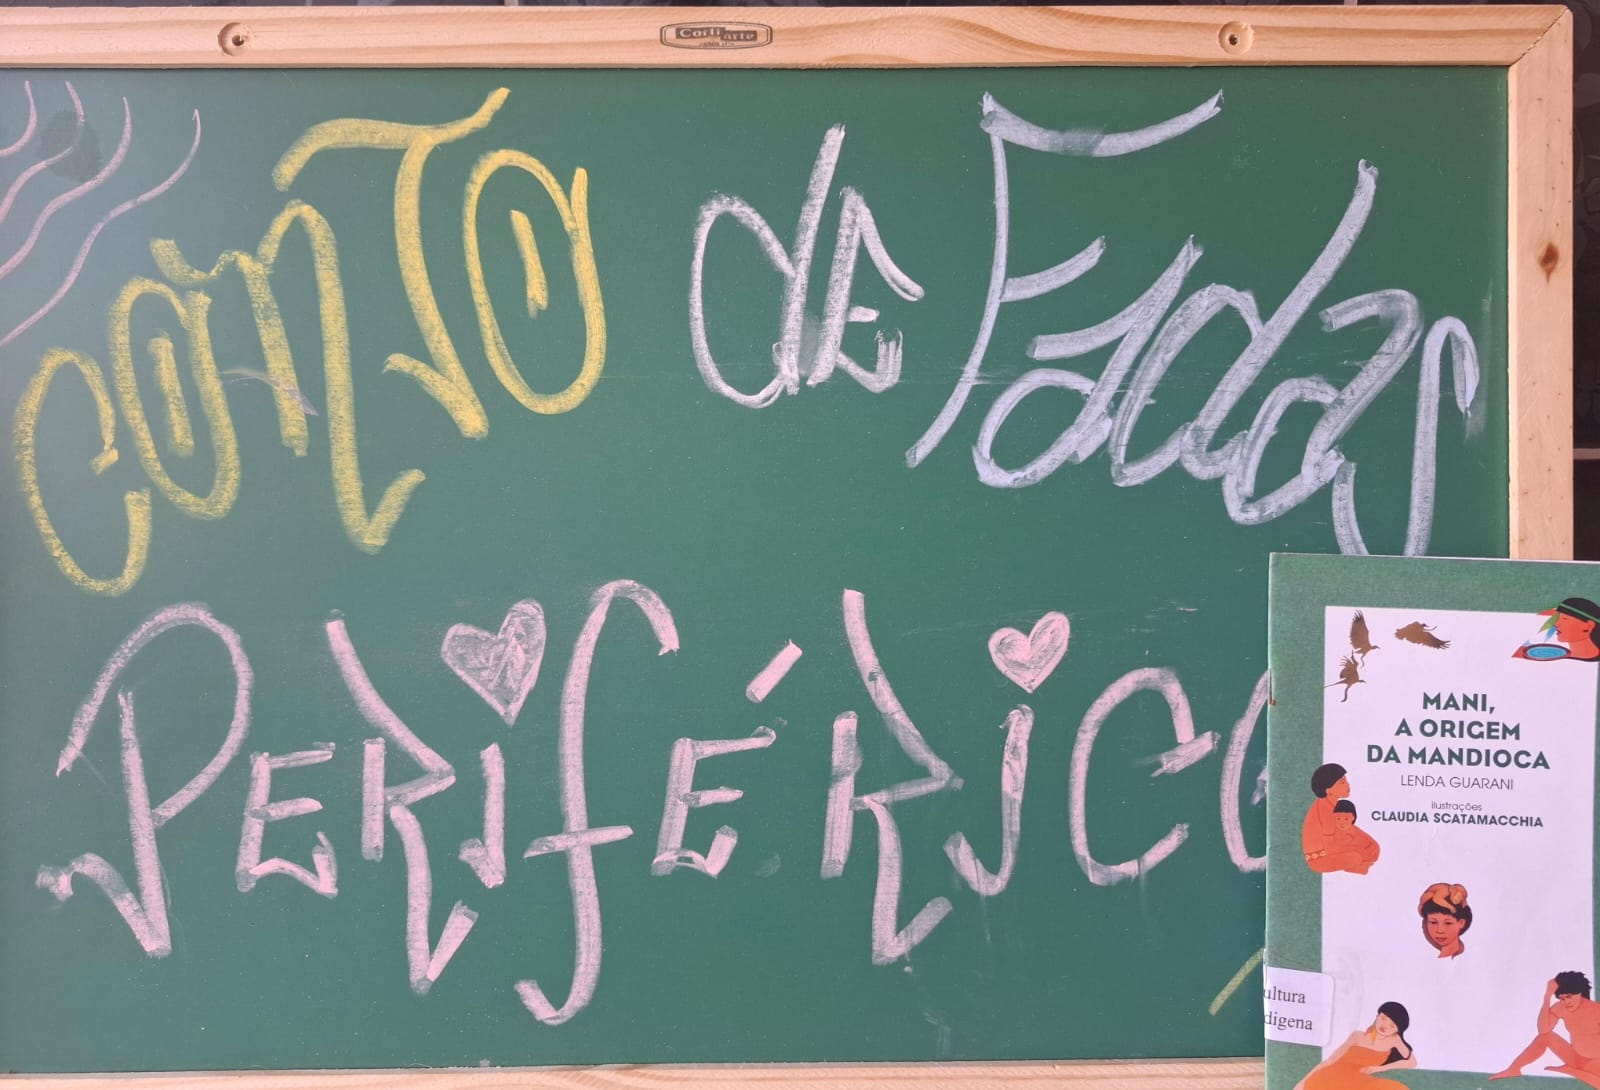 Corti arte
CONTO de Fadas
PERIFÉRICO
MANI,
A ORIGEM
DA MANDIOCA
LENDA GUARANI
ilustrações
CLAUDIA SCATAMACCHIA
ultura
dígena